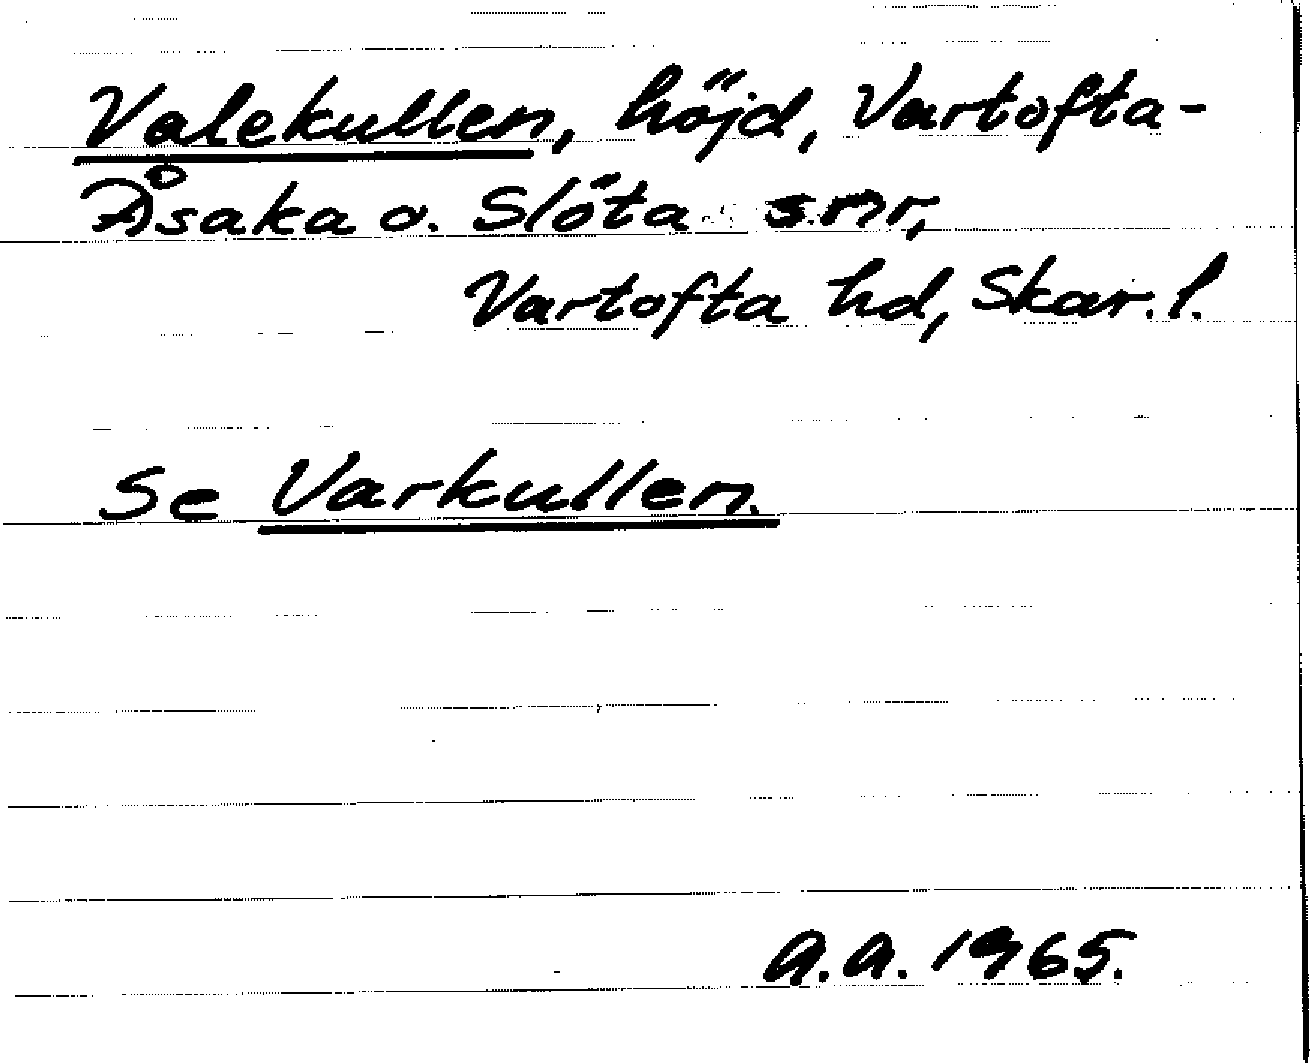 Valekullen, höjd, Vartofta-
Åsaka o. Slöta snr,
Vartofta hd, Skar. l.
Se Varkullen.
A.A. 1965.